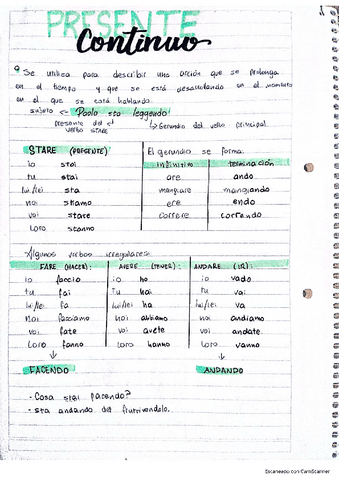 PRESENTE
Continuo
Se utiliza para describir una acción que se prolonga
en el tiempo y que se está desarrollando en el momento
en el que se está hablando.
sujeto <- Paolo sta leggendo
presente del verbo STARE
↳ Gerundio del verbo principal
STARE (PRESENTE)
io stai
tu stai
lui/lei sta
noi stiamo
voi stare
loro stanno
El gerundio se forma:
infinitivo terminación
are ando
mangiare mangiando
ere endo
correre correndo
Algunos verbos irregulares:
FARE (HACER): AVERE (TENER): ANDARE (IR):
io faccio io ho io vado
tu fai tu hai tu vai
lui/lei fa lui/lei ha lui/lei va
noi facciamo noi abbiamo noi andiamo
voi fate voi avete voi andate
loro fanno loro hanno loro vanno
FACENDO ANDANDO
- Cosa stai facendo?
- sta andando dal fruttivendolo.
Escaneado con CamScanner